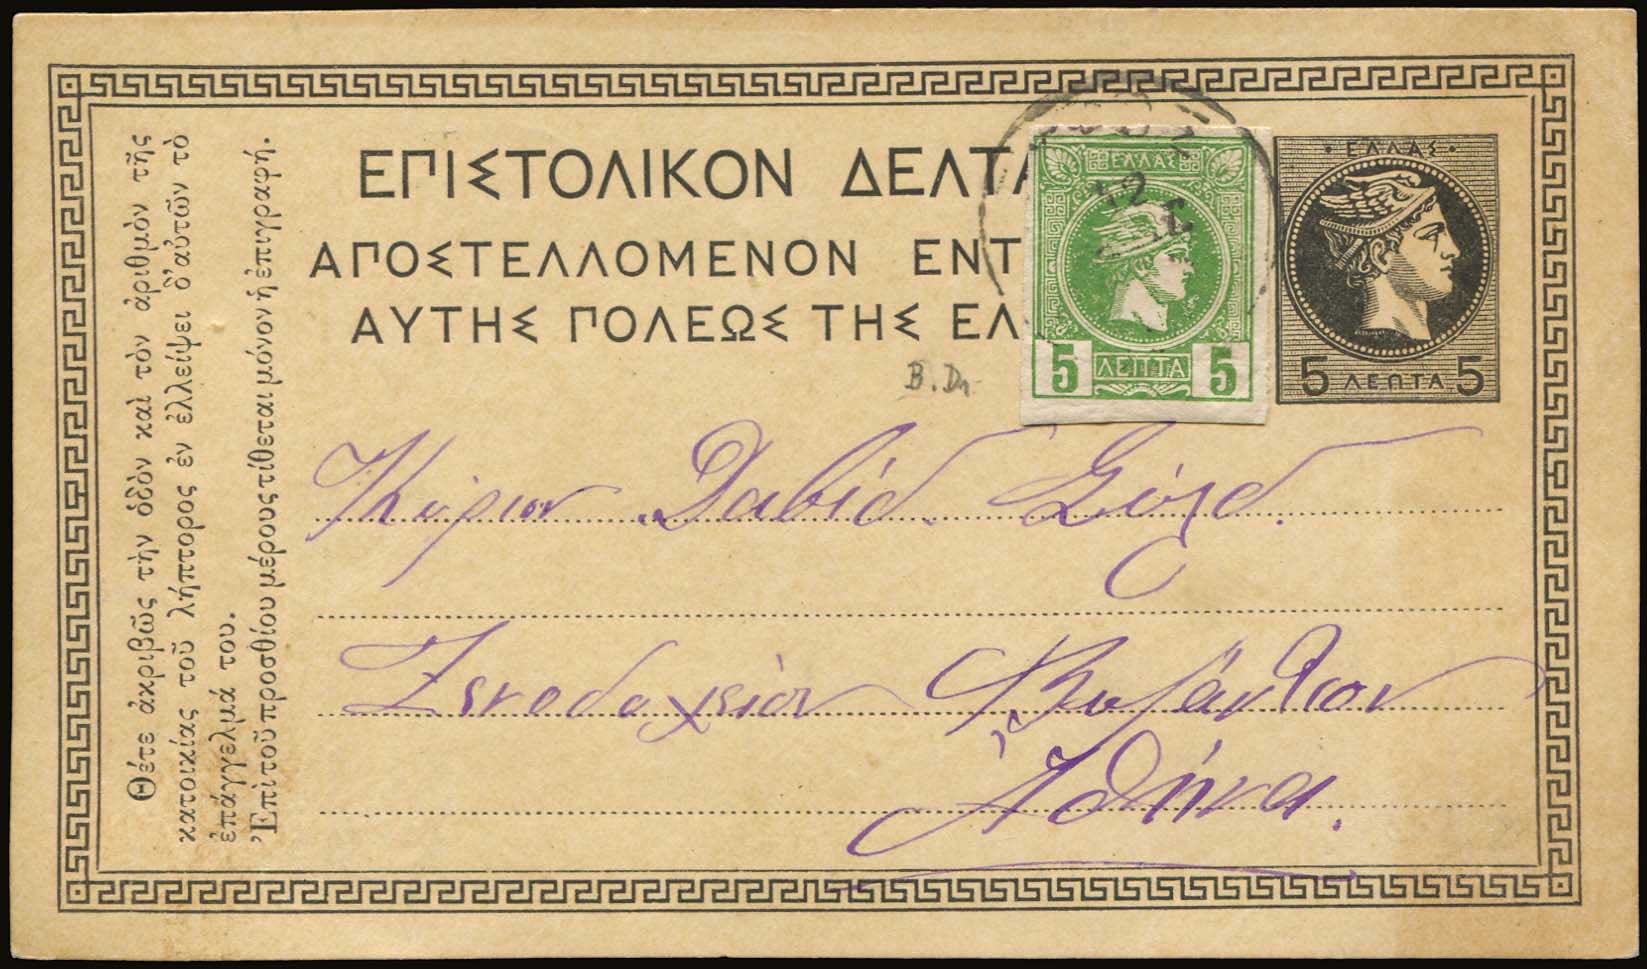 ΕΠΙΣΤΟΛΙΚΟΝ ΔΕΛΤΑ
ΑΠΟΣΤΕΛΛΟΜΕΝΟΝ ΕΝΤ
ΑΥΤΗΣ ΠΟΛΕΩΣ ΤΗΣ ΕΛ
ΕΛΛΑΣ
5 ΛΕΠΤΑ 5
· ΕΛΛΑΣ ·
5 ΛΕΠΤΑ 5
12
B. Dr.
Κύριον Δαβίδ
Ξενοδοχείον Βυζάντιον
Ἀθήνα.
Θέτε ἀκριβῶς τὴν ὁδὸν καὶ τὸν ἀριθμὸν τῆς
κατοικίας τοῦ λήπτορος ἐν ἐλλείψει δ'αὐτῶν τὸ
ἐπάγγελμά του.
Ἐπὶ τοῦ προσθίου μέρους τίθεται μόνον ἡ ἐπιγραφή.